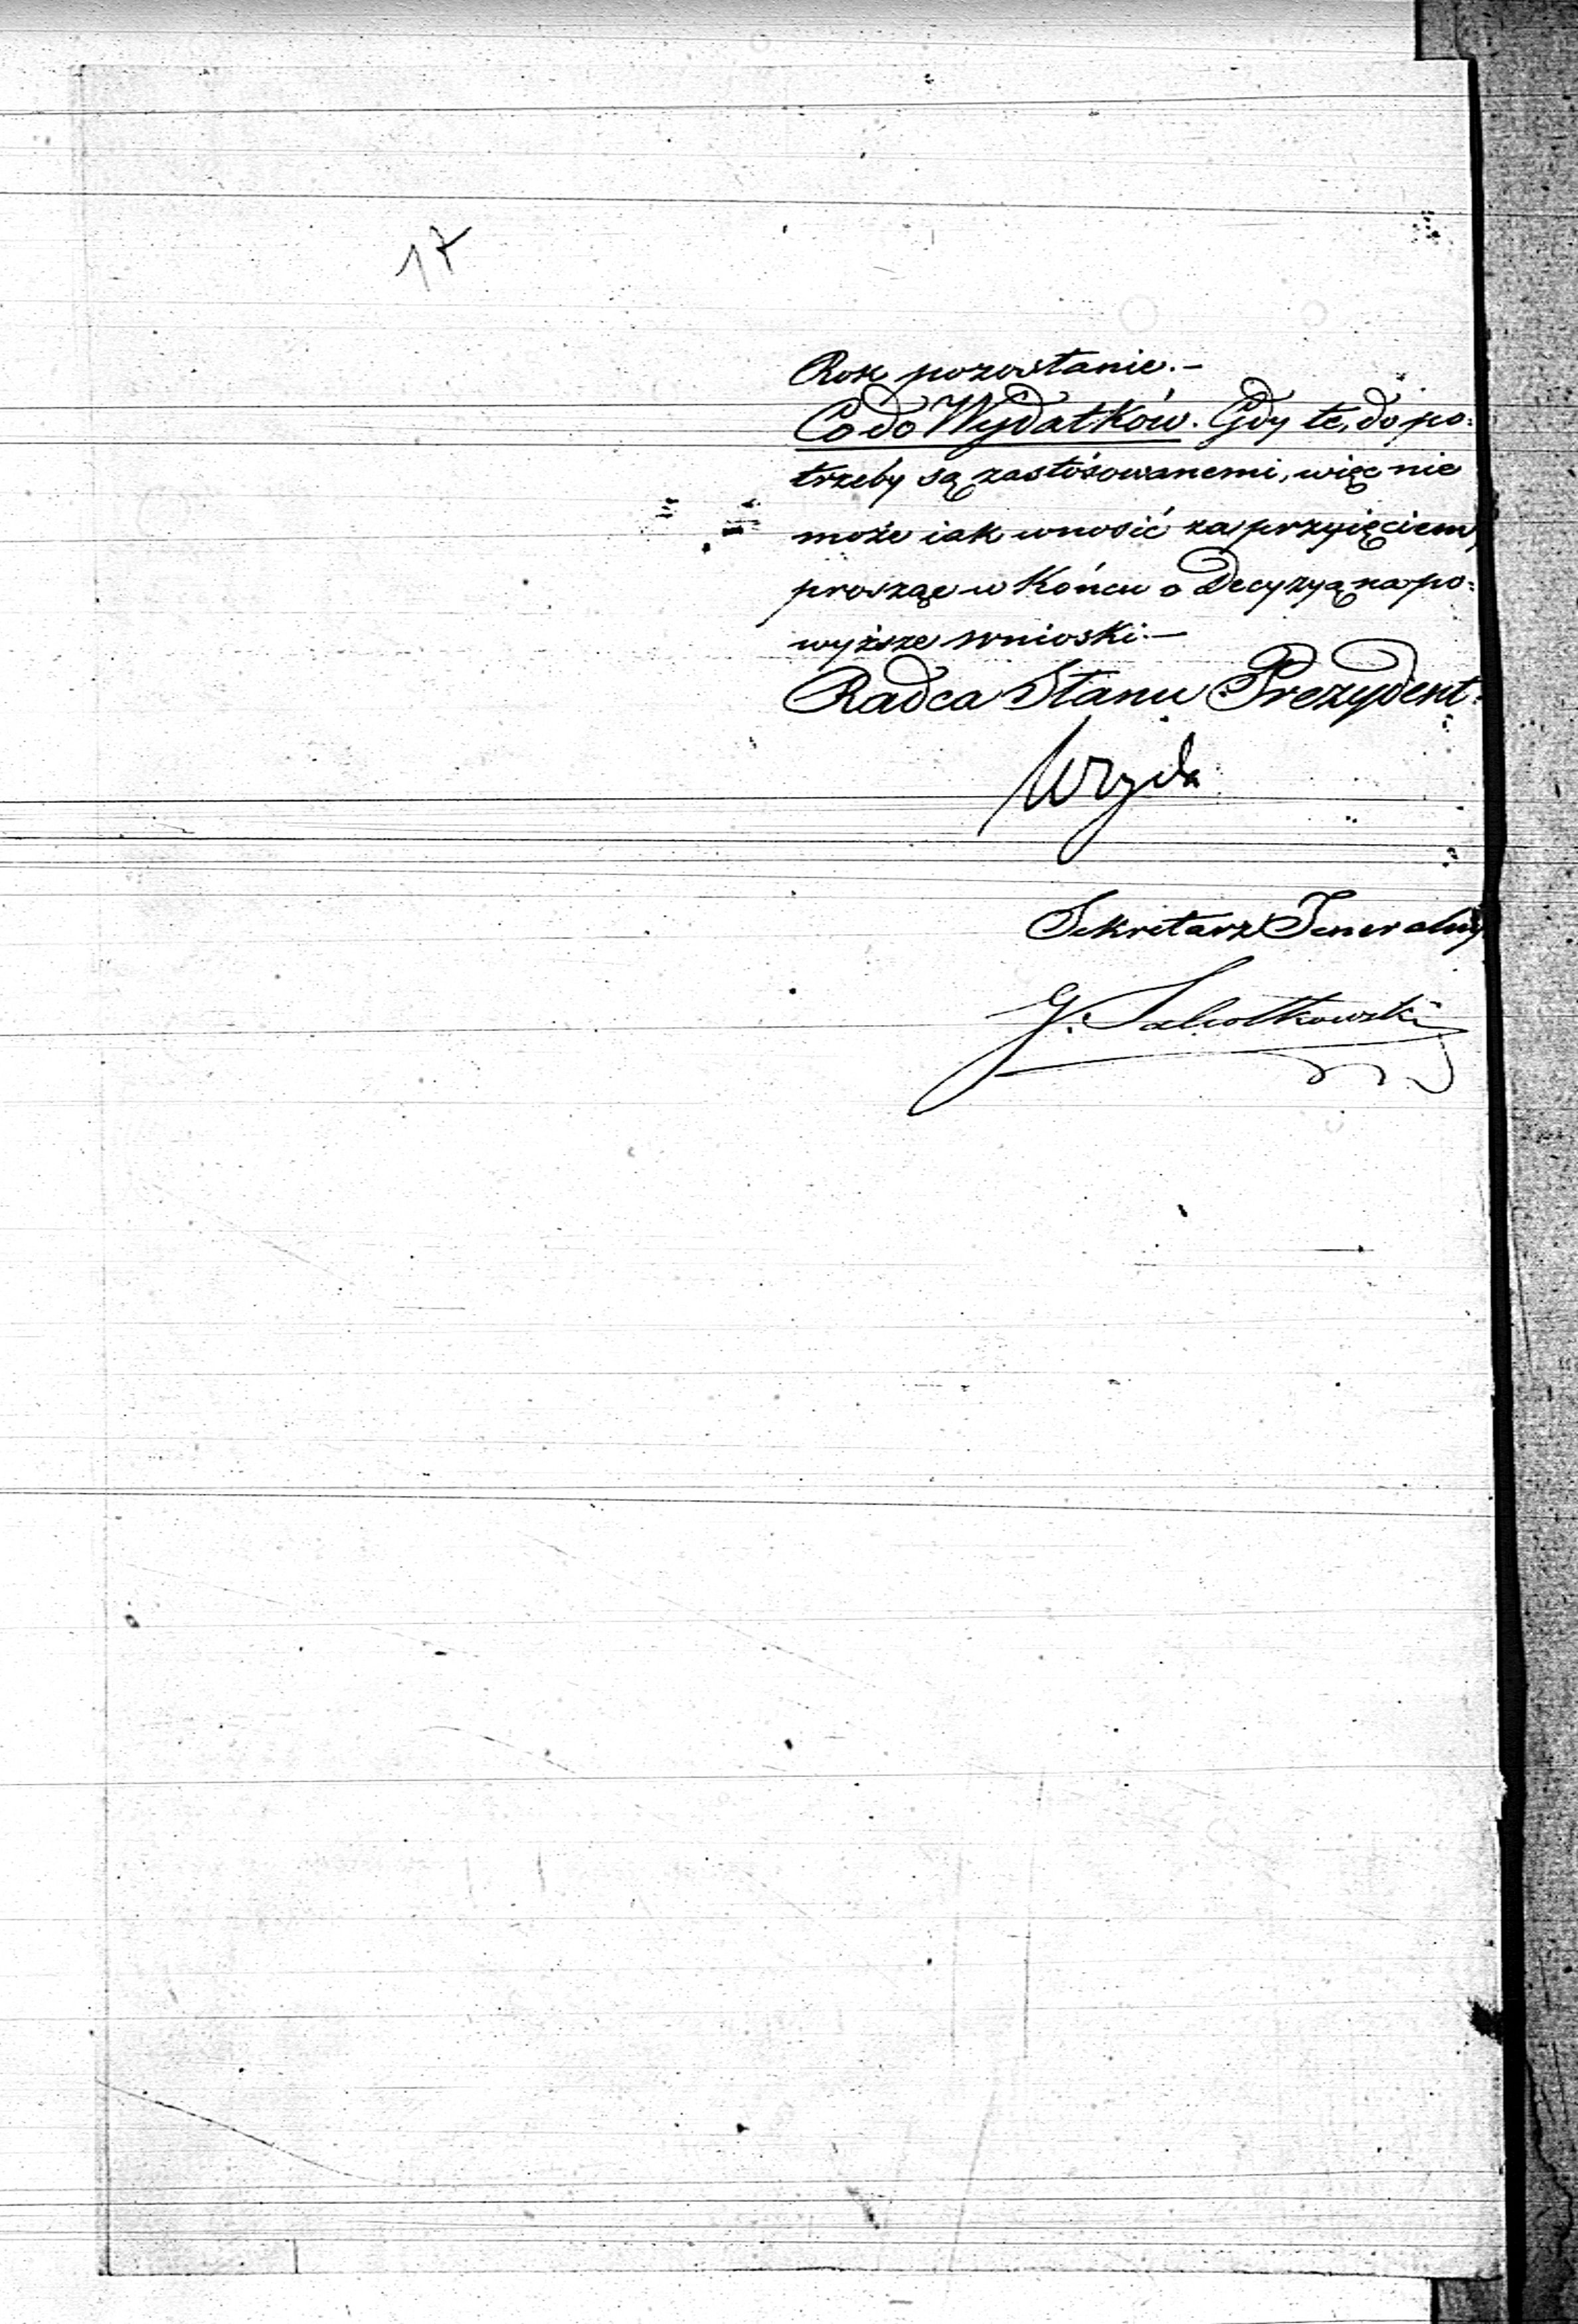 17
Rok pozostanie. –
Co do Wydatków. Gdy te, do po=
trzeby są zastósowanemi, więc nie
może iak wnosić za przyięciem,
prosząc w Końcu o Decyzyą na po=
wyższe wnioski. —
Radca Stanu Prezydent.
Sekretarz Jeneralny
G.